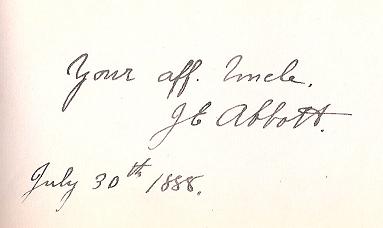 Your aff. Uncle.
J E Abbott.
July 30th 1888.